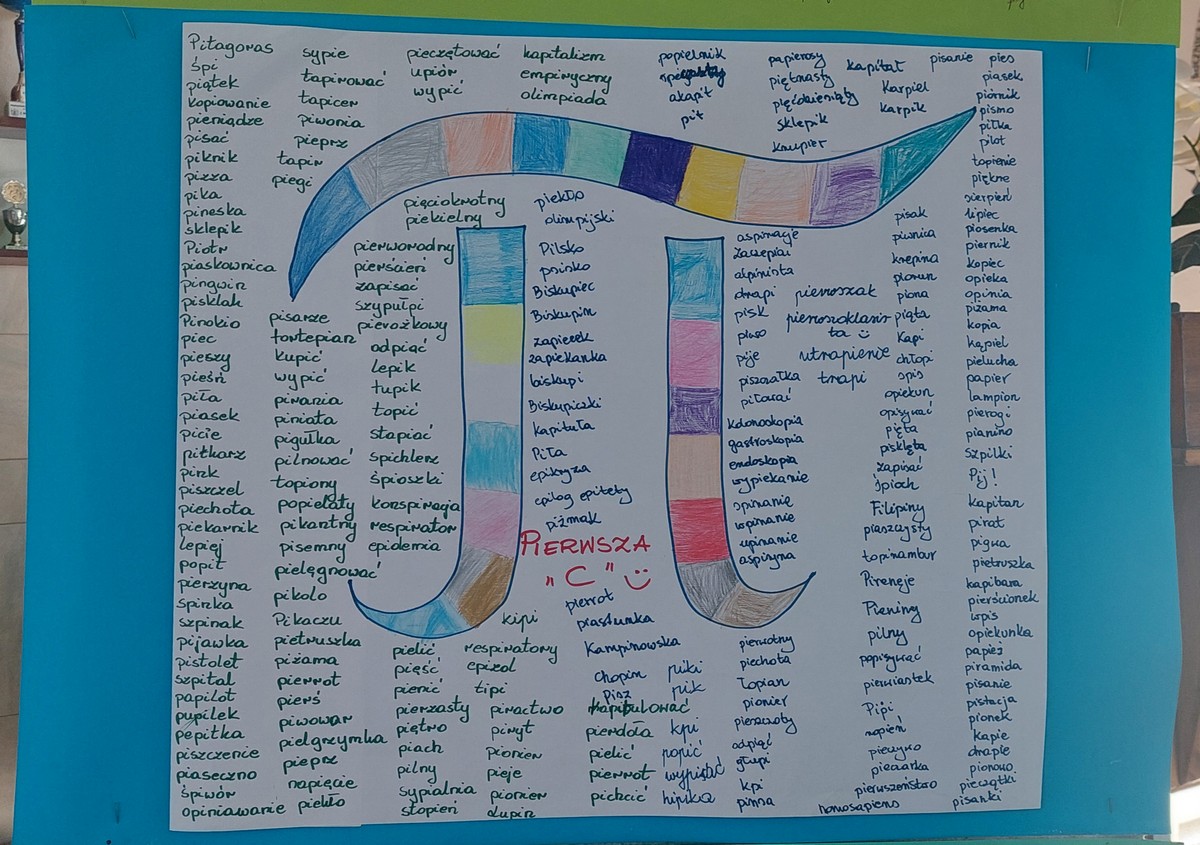 Pitagoras
śpi
piątek
kopiowanie
pieniądze
pisać
piknik
pizza
pika
pineska
sklepik
Piotr
piaskownica
pingwin
pisklak
Pinokio
piec
pieszy
pieśń
piła
piasek
picie
piłkarz
pink
piszczel
piechota
piekarnik
lepiej
popit
pierzyna
spinka
szpinak
pijawka
pistolet
szpital
papilot
pupilek
pepitka
piszczenie
piaseczno
śpiwór
opiniawanie
sypie
tapirować
tapicer
piwonia
pieprz
tapir
piegi
pisarze
fortepian
kupić
wypić
pirania
piniata
pigułka
pilnować
topiony
popielaty
pikantny
pisemny
pielęgnować
pikolo
Pikaczu
pietruszka
piżama
pierrot
pierś
piwowar
pielgrzymka
pieprz
napięcie
piekło
pieczętować
upiór
wypić
pięciokrotny
piekielny
pierworodny
pierścień
zapisać
szypułpi
pierożkowy
odpiąć
lepik
tupik
topić
stapiać
spichlerz
śpioszki
konspiracja
respirator
epidemia
pielić
pięść
pienić
pierzasty
piętro
piach
pilny
sypialnia
stopień
kapitalizm
empiryczny
olimpiada
piekło
olimpijski
Pilsko
psinko
Biskupiec
Biskupin
zapiecek
zapiekanka
biskupi
Biskupiczki
kapituła
Piła
epikryza
epilog epitety
piżmak
PIERWSZA
"C"
kipi
respiratory
epizol
tipi
piractwo
piryt
pionier
pieje
pionier
Łupin
pierrot
piastunka
Kampinowska
Chopin
Pisz
kapitulować
pierdoła
pielić
pierrot
pichcić
piki
pik
kpi
popić
wypisać
hipika
popielnik
akapit
pit
aspiracje
zaczepiać
alpinista
drapi
pisk
piwo
pije
piszczałka
piłować
kolonoskopia
gastroskopia
endoskopia
wypiekanie
spinanie
wpinanie
upinanie
aspiryna
pierwotny
piechota
Topian
pionier
pieszczoty
odpiąć
głupi
kpi
pinna
papierosy
piętnasty
pięćdziesiąty
sklepik
krupier
pierwszak
pierwszoklasis
ta
utrapienie
trapi
kapitał
Karpiel
karpik
pisak
piwnica
krepina
piorun
piona
piąta
Kapi
chłopi
spis
opiekun
opisywać
pięta
pisklęta
zapisać
śpioch
Filipiny
piaszczysty
topinambur
Pireneje
Pieniny
pilny
popisywać
pierwiastek
Pipi
napień
piecyko
pieczarka
pierwszeństwo
homosapiens
pisanie
pies
piasek
piórnik
pismo
piłka
pilot
topienie
piękne
sierpień
lipiec
piosenka
piernik
kopiec
opieka
opinia
piżama
kopia
kąpiel
pielucha
papier
lampion
pierogi
pianino
szpilki
Pij!
kapitan
pirat
pigwa
pietruszka
kapibara
pierścionek
wpis
opiekunka
papież
piramida
pisanie
pistacja
pionek
kapie
drapie
pionowo
pieczątki
pisanki